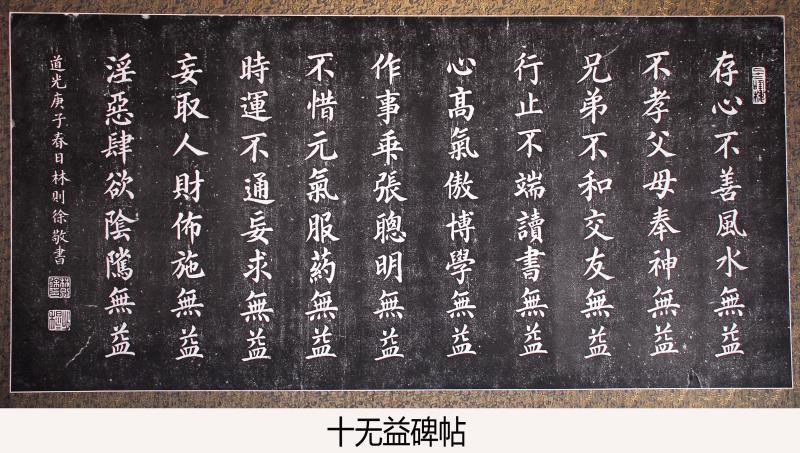 存心不善風水無益
不孝父母奉神無益
兄弟不和交友無益
行止不端讀書無益
心高氣傲博學無益
作事乖張聰明無益
不惜元氣服药無益
時運不通妄求無益
妄取人財佈施無益
淫惡肆欲陰隲無益
道光庚子春日林則徐敬書
十无益碑帖